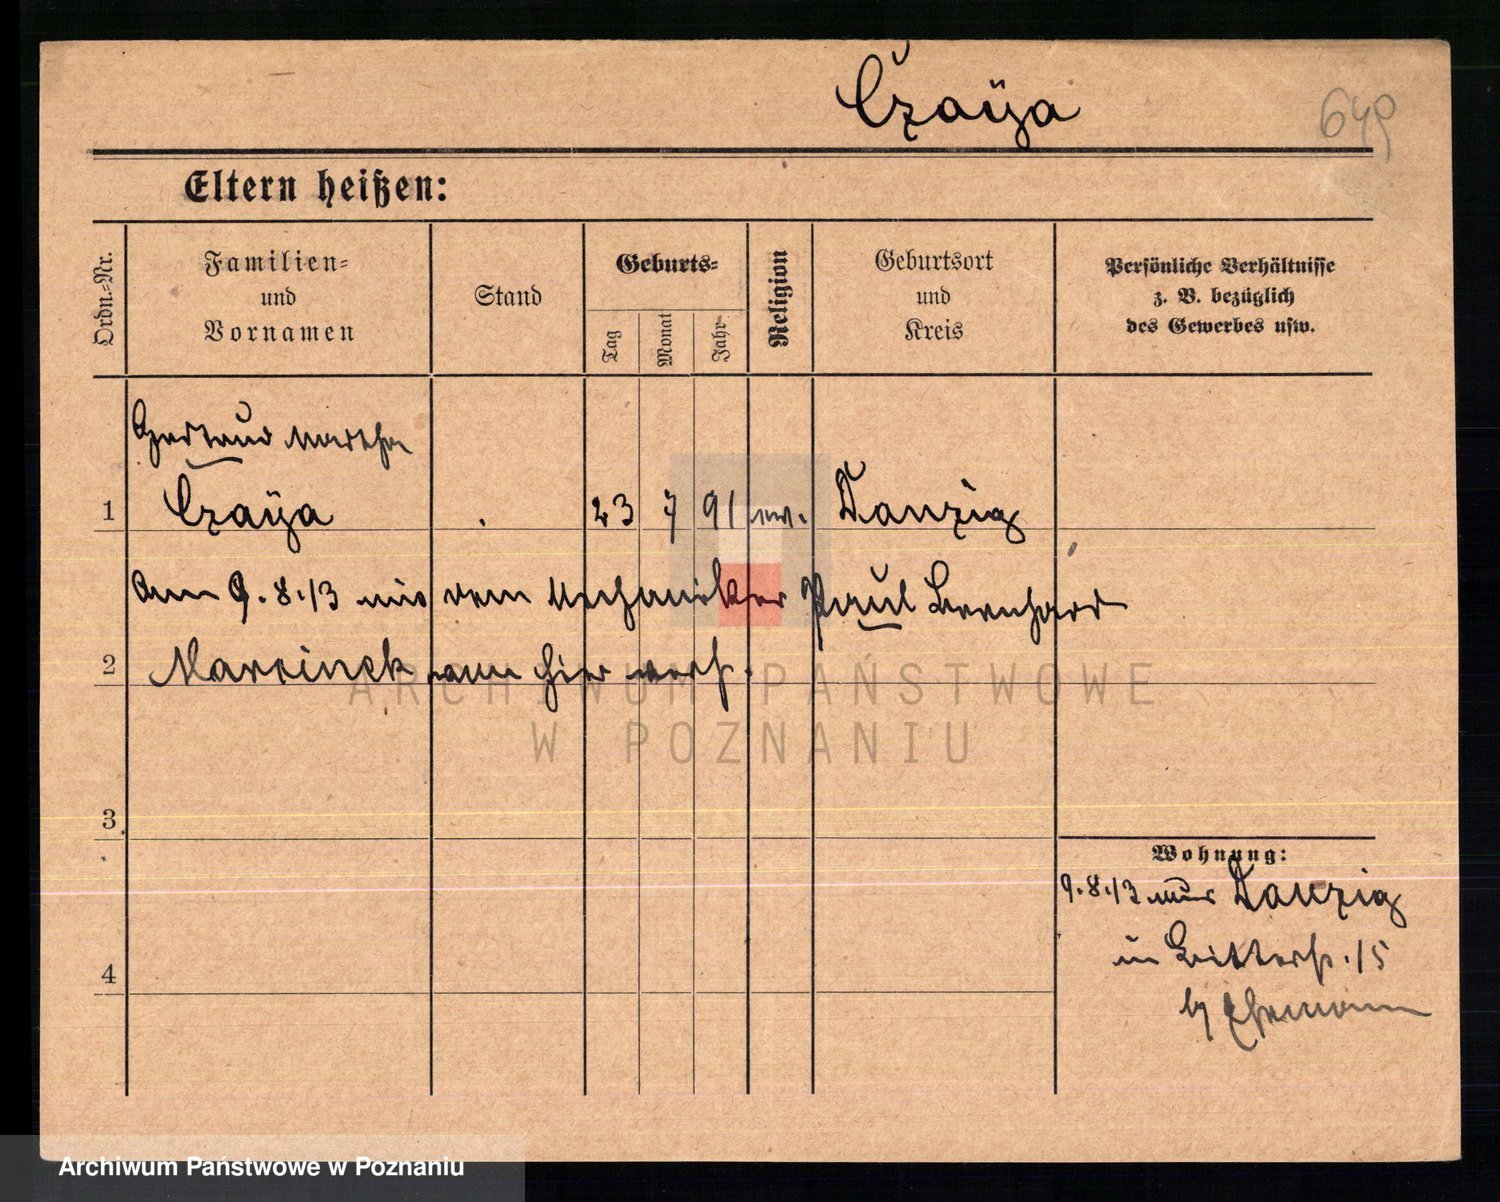 Czaÿa
649
Eltern heißen:
Ordn.-Nr.
Familien-
und
Vornamen
Stand
Geburts-
Tag
Monat
Jahr
Religion
Geburtsort
und
Kreis
Persönliche Verhältnisse
z. B. bezüglich
des Gewerbes usw.
Gertrud Martha
1 Czaÿa 23 7 91 ev. Danzig
Am 9.8.13 mit dem Mechaniker Paul Bernhard
2 Marcinek von hier verh.
ARCHIWUM PAŃSTWOWE
W POZNANIU
3
Wohnung:
9.8.13 aus Danzig
in Ritterst. 15
4
b/ Ehemann
Archiwum Państwowe w Poznaniu